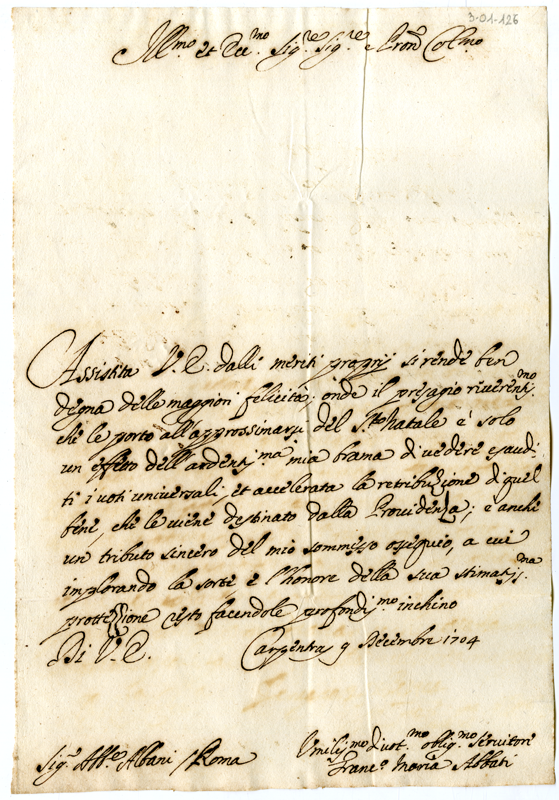 3-01-126
Ill.mo et Ecc.mo Sig.re Sig.re Pron Col.mo
Assistita V. E. dalli meriti proprij si rende ben
degna delle maggiori felicità; onde il presagio riverentis.mo
che le porto all'approssimarsi del S.to Natale è solo
un effetto dell'ardentis.ma mia brama di vedere esaudi-
ti i voti universali, et accelerata la retribuzione di quel
bene, che le viene destinato dalla Providenza; e anche
un tributo sincero del mio sommesso ossequio, a cui
implorando la sorte e l'honore della sua stimatis.ma
prottezzione resto facendole profondis.mo inchino
Di V. E. Carpentras 9 Decembre 1704
Sig.r Abb.e Albani / Roma
Umilis.mo divot.mo oblig.mo servitore
Franc.o Maria Abbati